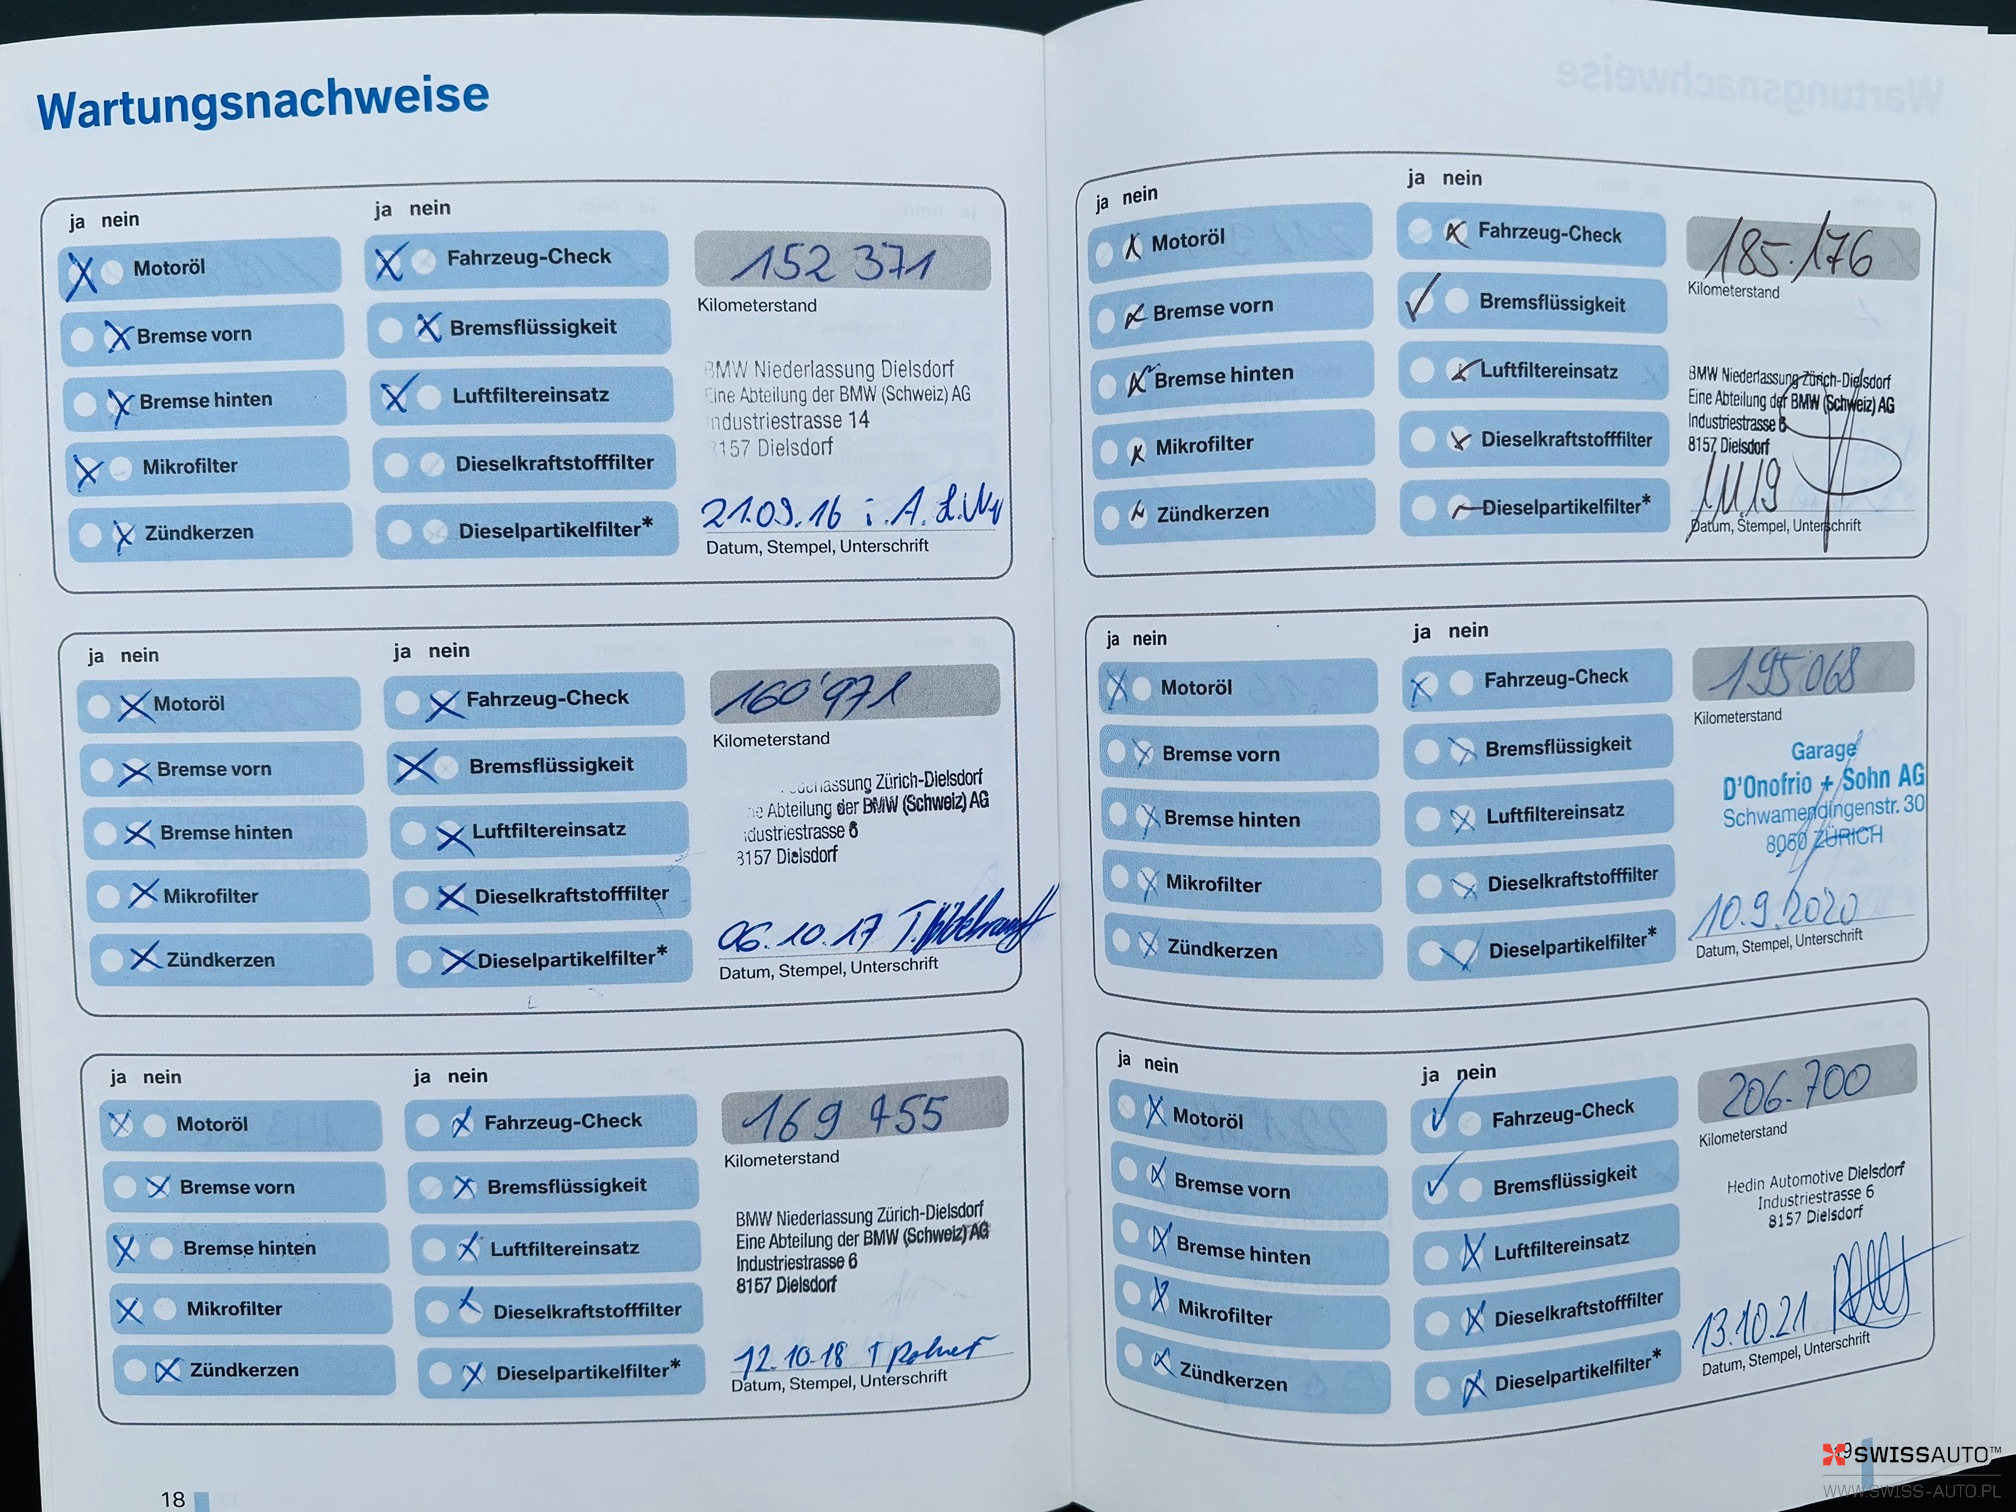 Wartungsnachweise
ja nein
Motoröl
Bremse vorn
Bremse hinten
Mikrofilter
Zündkerzen
ja nein
Fahrzeug-Check
Bremsflüssigkeit
Luftfiltereinsatz
Dieselkraftstofffilter
Dieselpartikelfilter*
152 371
Kilometerstand
BMW Niederlassung Dielsdorf
Eine Abteilung der BMW (Schweiz) AG
Industriestrasse 14
8157 Dielsdorf
21.09.16 i.A.
Datum, Stempel, Unterschrift
ja nein
Motoröl
Bremse vorn
Bremse hinten
Mikrofilter
Zündkerzen
ja nein
Fahrzeug-Check
Bremsflüssigkeit
Luftfiltereinsatz
Dieselkraftstofffilter
Dieselpartikelfilter*
160'971
Kilometerstand
Zürich-Dielsdorf
Abteilung der BMW (Schweiz) AG
Industriestrasse 6
8157 Dielsdorf
06.10.17
Datum, Stempel, Unterschrift
ja nein
Motoröl
Bremse vorn
Bremse hinten
Mikrofilter
Zündkerzen
ja nein
Fahrzeug-Check
Bremsflüssigkeit
Luftfiltereinsatz
Dieselkraftstofffilter
Dieselpartikelfilter*
169 755
Kilometerstand
BMW Niederlassung Zürich-Dielsdorf
Eine Abteilung der BMW (Schweiz) AG
Industriestrasse 6
8157 Dielsdorf
12.10.18
Datum, Stempel, Unterschrift
18
ja nein
Motoröl
Bremse vorn
Bremse hinten
Mikrofilter
Zündkerzen
ja nein
Fahrzeug-Check
Bremsflüssigkeit
Luftfiltereinsatz
Dieselkraftstofffilter
Dieselpartikelfilter*
185.176
Kilometerstand
BMW Niederlassung Zürich-Dielsdorf
Eine Abteilung der BMW (Schweiz) AG
Industriestrasse 6
8157 Dielsdorf
Datum, Stempel, Unterschrift
ja nein
Motoröl
Bremse vorn
Bremse hinten
Mikrofilter
Zündkerzen
ja nein
Fahrzeug-Check
Bremsflüssigkeit
Luftfiltereinsatz
Dieselkraftstofffilter
Dieselpartikelfilter*
195'068
Kilometerstand
Garage
D'Onofrio + Sohn AG
Schwamendingenstr. 30
8050 ZÜRICH
10.9.2020
Datum, Stempel, Unterschrift
ja nein
Motoröl
Bremse vorn
Bremse hinten
Mikrofilter
Zündkerzen
ja nein
Fahrzeug-Check
Bremsflüssigkeit
Luftfiltereinsatz
Dieselkraftstofffilter
Dieselpartikelfilter*
206.700
Kilometerstand
Hedin Automotive Dielsdorf
Industriestrasse 6
8157 Dielsdorf
13.10.21
Datum, Stempel, Unterschrift
SWISSAUTO™
WWW.SWISS-AUTO.PL